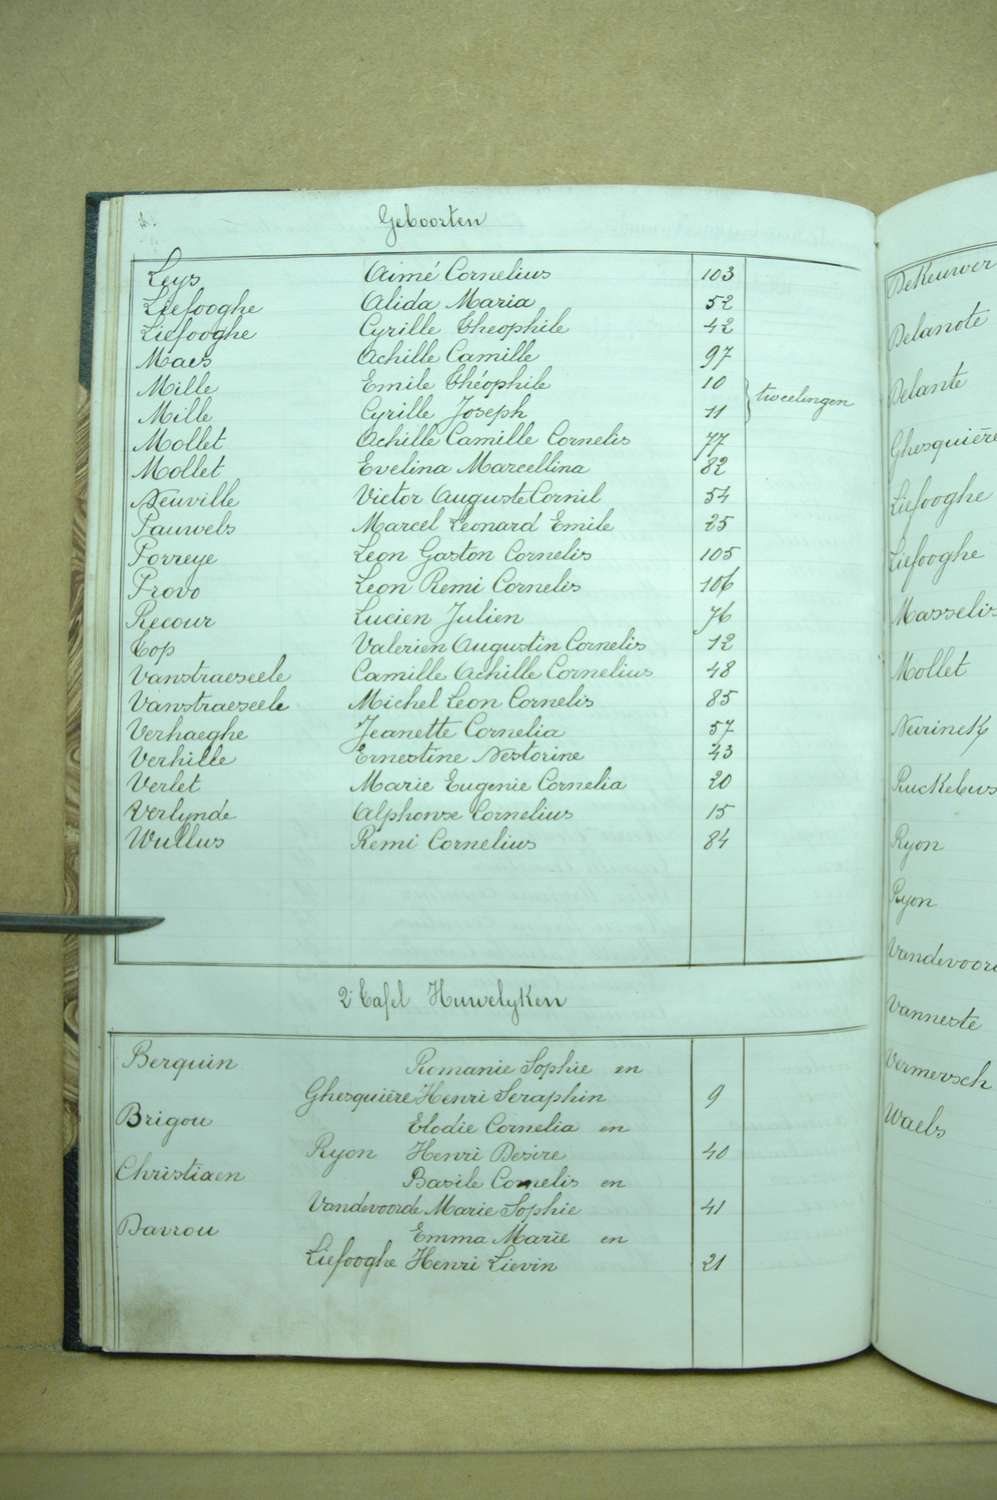 Geboorten
Leys Aimé Cornelius 103
Liefooghe Alida Maria 52
Liefooghe Cyrille Theophile 42
Maes Achille Camille 97
Mille Emile Théophile 10
tweelingen
Mille Cyrille Joseph 11
Mollet Achille Camille Cornelis 77
Mollet Evelina Marcellina 82
Neuville Victor Auguste Cornil 54
Pauwels Marcel Léonard Emile 25
Porreye Léon Gaston Cornelis 105
Provo Léon Remi Cornelis 106
Recour Lucien Julien 76
Top Valerien Augustin Cornelis 12
Vanstraeseele Camille Achille Cornelius 48
Vanstraeseele Michel Leon Cornelis 85
Verhaeghe Jeanette Cornelia 57
Verhille Ernestine Nestorine 43
Verlet Marie Eugenie Cornelia 20
Verlynde Alphonse Cornelius 15
Wullus Remi Cornelius 84
2e Tafel Huwelyken
Berquin Romanie Sophie en
Ghesquière Henri Seraphin 9
Brigou Elodie Cornelia en
Ryon Henri Desire 40
Christiaen Basile Cornelis en
Vandevoorde Marie Sophie 41
Davrou Emma Marie en
Liefooghe Henri Lievin 21
DeKeuwer
Delanote
Delante
Ghesquière
Liefooghe
Liefooghe
Masselis
Mollet
Neirinck
Ruckebus
Ryon
Ryon
Vandevoord
Vanneste
Vermersch
Waels